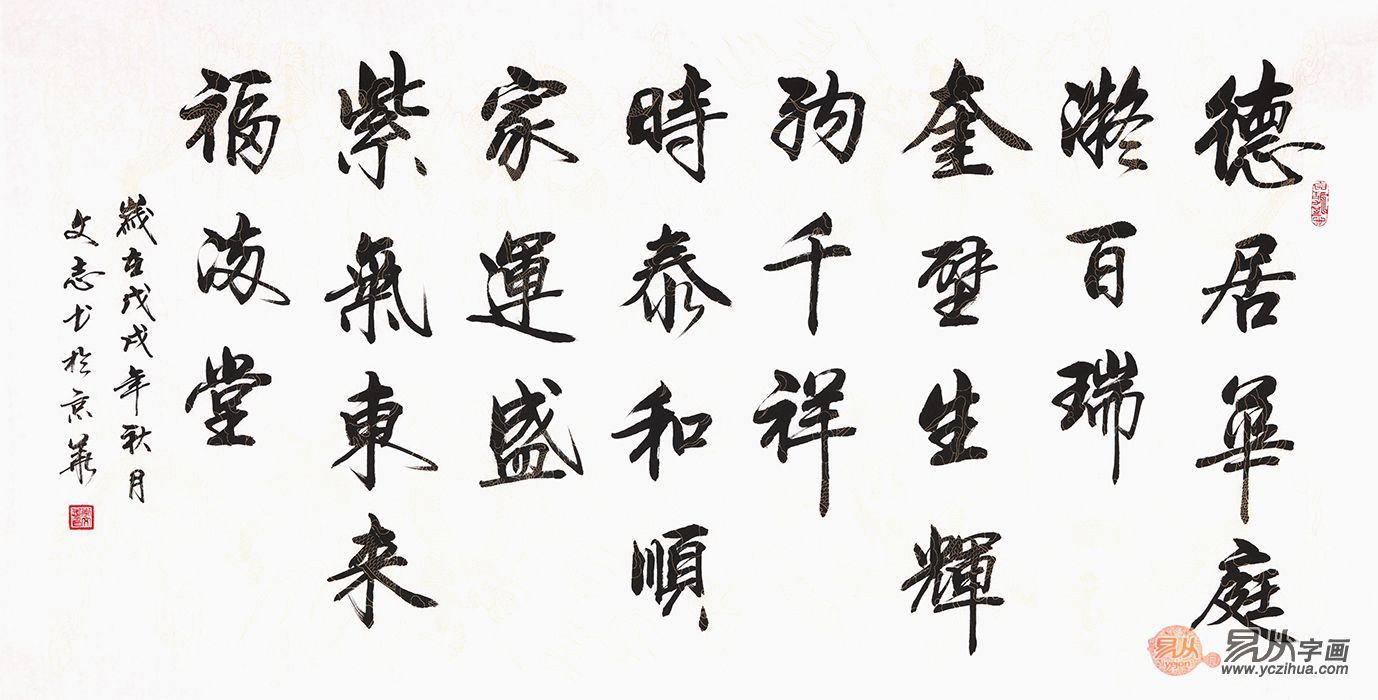 德居華庭
凝百瑞
奎壁生輝
納千祥
時泰和順
家運盛
紫氣東來
福滿堂
歲在戊戌年秋月
文志书於京華
易从字画
yejon
www.yczihua.com